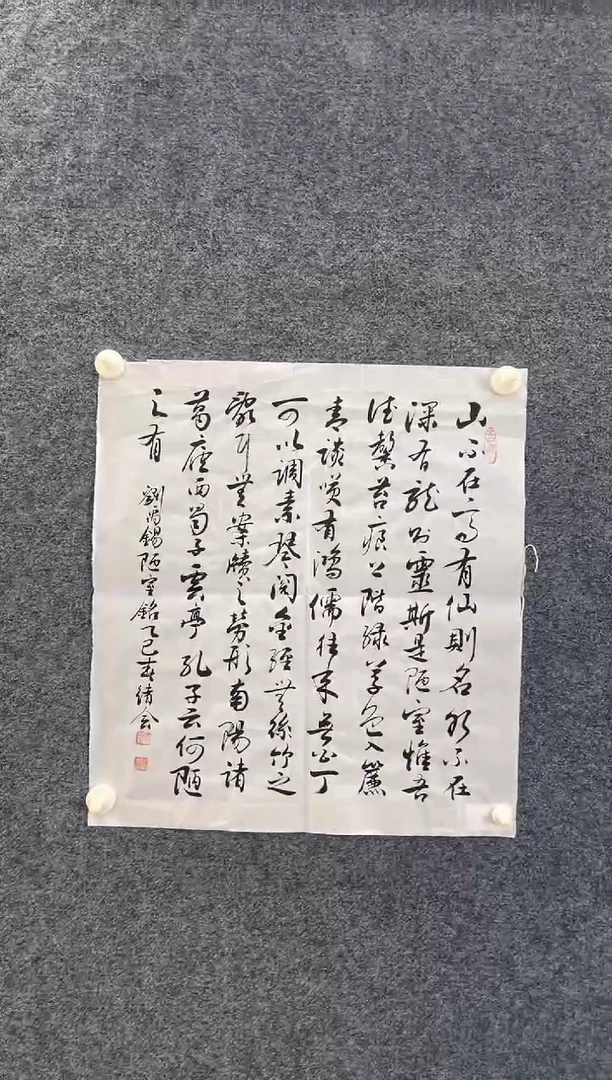 山不在高有仙則名水不在
深有龍則靈斯是陋室惟吾
德馨苔痕上階緑草色入簾
青談笑有鴻儒往来無白丁
可以調素琴閲金經無絲竹之
亂耳無案牘之勞形南陽諸
葛廬西蜀子雲亭孔子云何陋
之有
劉禹錫陋室銘乙巳春